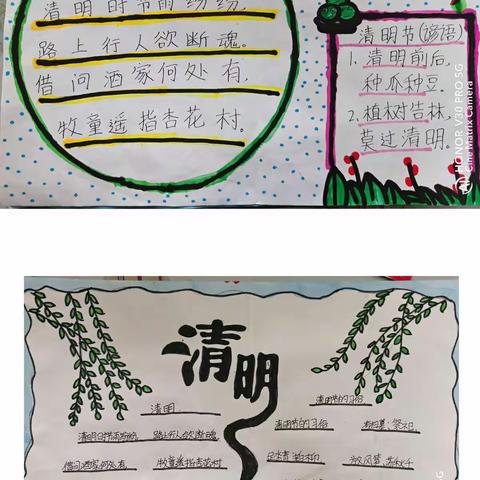 清明时节雨纷纷,
路上行人欲断魂。
借问酒家何处有,
牧童遥指杏花村。
清明节(谚语)
1. 清明前后,
种瓜种豆.
2. 植树造林,
莫过清明.
HONOR V30 PRO 5G
Cine Matrix Camera
清明
清明
清明时节雨纷纷
路上行人欲断魂
借问酒家何处有
牧童遥指杏花村
清明节的习俗
清明节的习俗
放风筝
5G